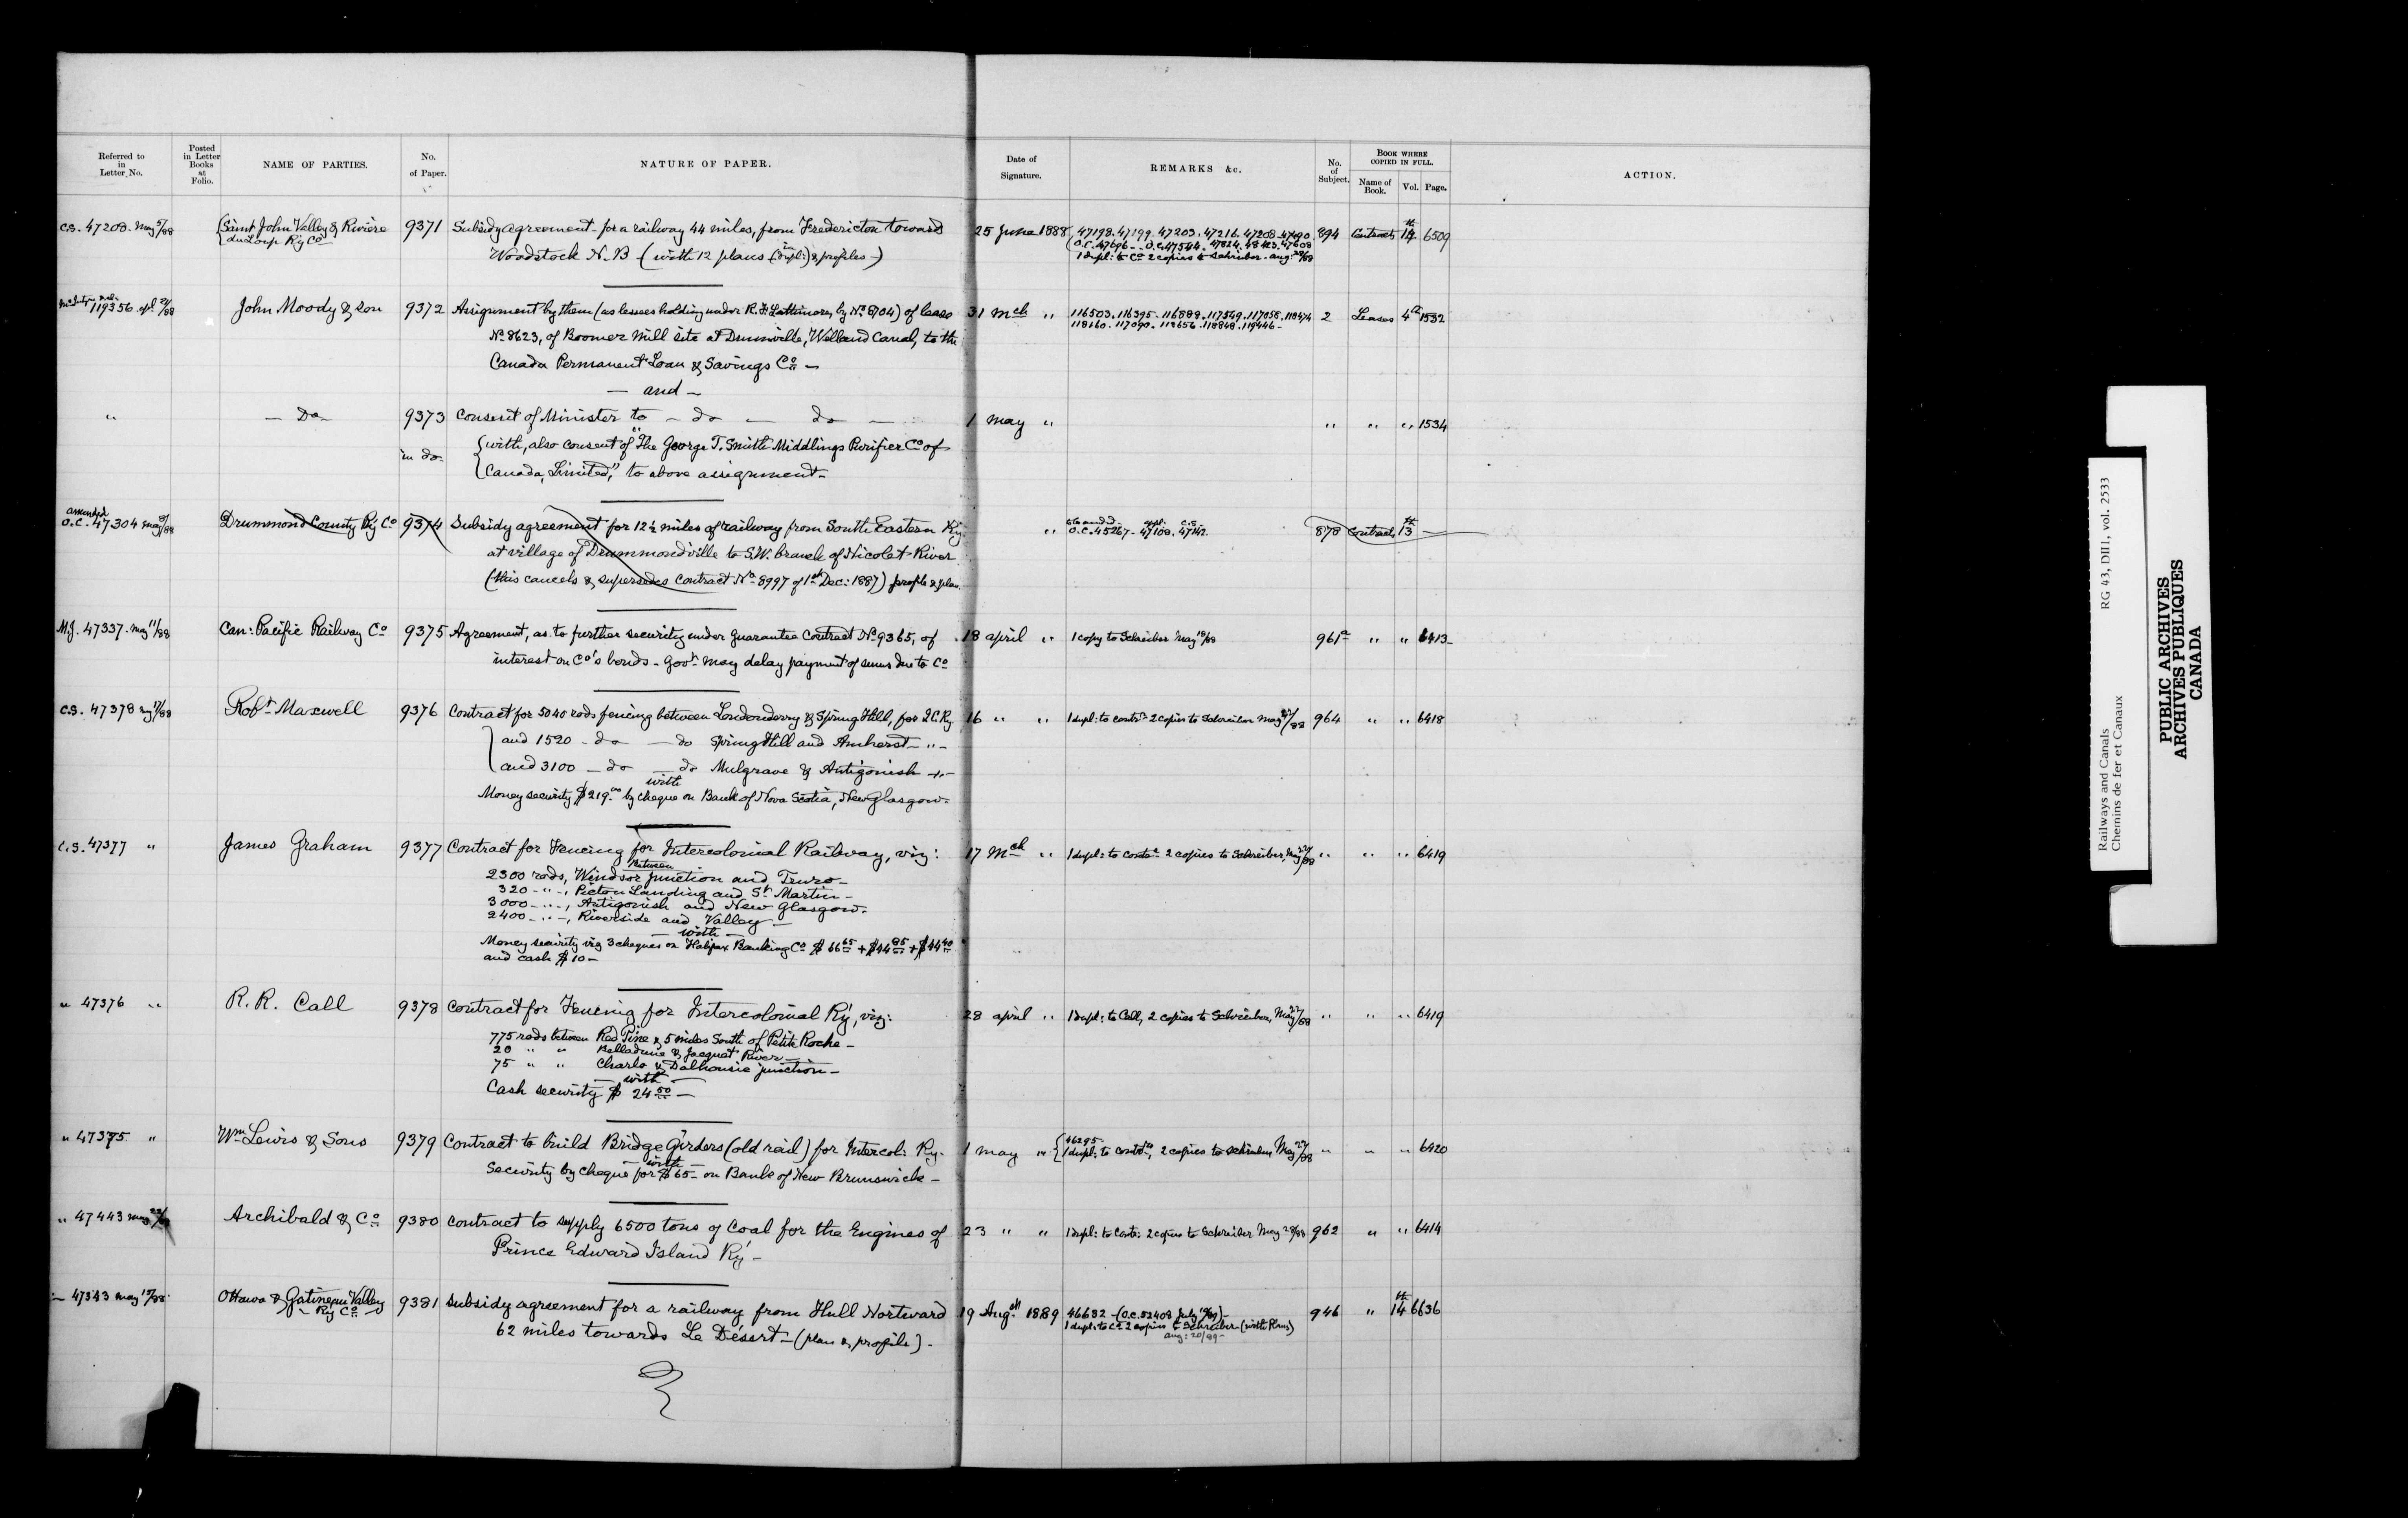 Referred to in Letter No.
Posted in Letter Books at Folio.
NAME OF PARTIES.
No. of Paper.
NATURE OF PAPER.
Date of Signature.
REMARKS &c.
No. of Subject.
BOOK WHERE COPIED IN FULL.
Name of Book.
Vol.
Page.
ACTION.
C.S. 47208. May 5/88 Saint John Valley & Rivière 9371 Subsidy agreement for a railway 44 miles, from Fredericton toward 25 June 1888 47198. 47199. 47203. 47216. 47208. 47690. 894 Contracts 14th 6509
du Loup Ry Co Woodstock N.B (with 12 plans (in dupl:) & profiles -) O.C. 47696 - O.C. 47544. 47824. 48423. 47608
1 dupl: to Co 2 copies to Schreiber. Aug: 28/88
119356 apl 21/88 John Moody & son 9372 Assignment by them (as lessees holding under R. F. Lattimore, by No 8704) of lease 31 Mch " 116503. 116395. 116888. 117549. 117058. 118474 2 Leases 4a 1532
No 8623, of Boomer Mill site at Dunnville, Welland Canal, to the 118160. 117090. 118656. 118848. 119446 -
Canada Permanent Loan & Savings Co -
- and -
" - Do - 9373 Consent of Minister to - do - do - 1 May " " " " 1534
in do. with, also consent of "The George T. Smith Middlings Purifier Co of
Canada, Limited," to above assignment -
amended
O.C. 47304 May 8/88 Drummond County Ry Co 9374 Subsidy agreement for 12½ miles of railway from South Eastern Ry. " O.C. 45267 - 47108. 47142. 878 Contracts 13th -
at village of Drummondville to S.W. branch of Nicolet River
(this cancels & supersedes Contract No 8997 of 1st Dec: 1887) profile & plan.
M.J. 47337. May 11/88 Can: Pacific Railway Co 9375 Agreement, as to further security under guarantee Contract No 9365, of 18 April " 1 copy to Schreiber May 18/88 961a " " 6413
interest on Co's bonds - Govt may delay payment of sums due to Co
C.S. 47378 My 17/88 Robt Maxwell 9376 Contract for 5040 rods fencing between Londonderry & Spring Hill, for I.C. Ry 16 " " 1 dupl: to contr 2 copies to Schreiber May 22/88 964 " " 6418
and 1520 - do - do Spring Hill and Amherst - " -
and 3100 - do - do Mulgrave & Antigonish - " -
with
Money security $219.00 by cheque on Bank of Nova Scotia, New Glasgow -
C.S. 47377 " James Graham 9377 Contract for Fencing for Intercolonial Railway, viz: 17 Mch " 1 dupl: to contr 2 copies to Schreiber, May 22/88 " " " 6419
between
2300 rods, Windsor junction and Truro -
320 - " -, Pictou Landing and St. Martin -
3000 - " -, Antigonish and New Glasgow -
2400 - " -, Riverside and Valley -
- with -
Money security viz 3 cheques on Halifax Banking Co $66 65 + $44 85 + $44 40
and cash $10 -
" 47376 " R. R. Call 9378 Contract for Fencing for Intercolonial Ry, viz: 28 April " 1 dupl: to Call, 2 copies to Schreiber, May 22/88 " " " 6419
775 rods between Red Pine & 5 miles South of Petite Roche -
20 " " Belledune & Jacquet River -
75 " " Charlo & Dalhousie junction -
- with -
Cash security $24 50 -
" 47375 " Wm Lewis & Sons 9379 Contract to build Bridge Girders (old rail) for Intercol: Ry. 1 May " 46295 - " " " 6420
- with - 1 dupl: to contr, 2 copies to Schreiber, May 22/88
Security by cheque for $65 - on Bank of New Brunswick -
" 47443 May 23/88 Archibald & Co 9380 Contract to supply 6500 tons of Coal for the Engines of 23 " " 1 dupl: to Contr: 2 copies to Schreiber May 28/88 962 " " 6414
Prince Edward Island Ry -
47343 May 15/88 Ottawa & Gatineau Valley 9381 Subsidy agreement for a railway from Hull Northward 19 Augst 1889 46682 - (O.C. 52408 July 19/89) - 946 " 14th 6636
Ry Co 62 miles towards Le Désert - (plan & profile) - 1 dupl: to Co 2 copies to Schreiber (with Plans)
Aug: 20/89 -
Railways and Canals
Chemins de fer et Canaux
RG 43, DIII, vol. 2533
PUBLIC ARCHIVES
ARCHIVES PUBLIQUES
CANADA